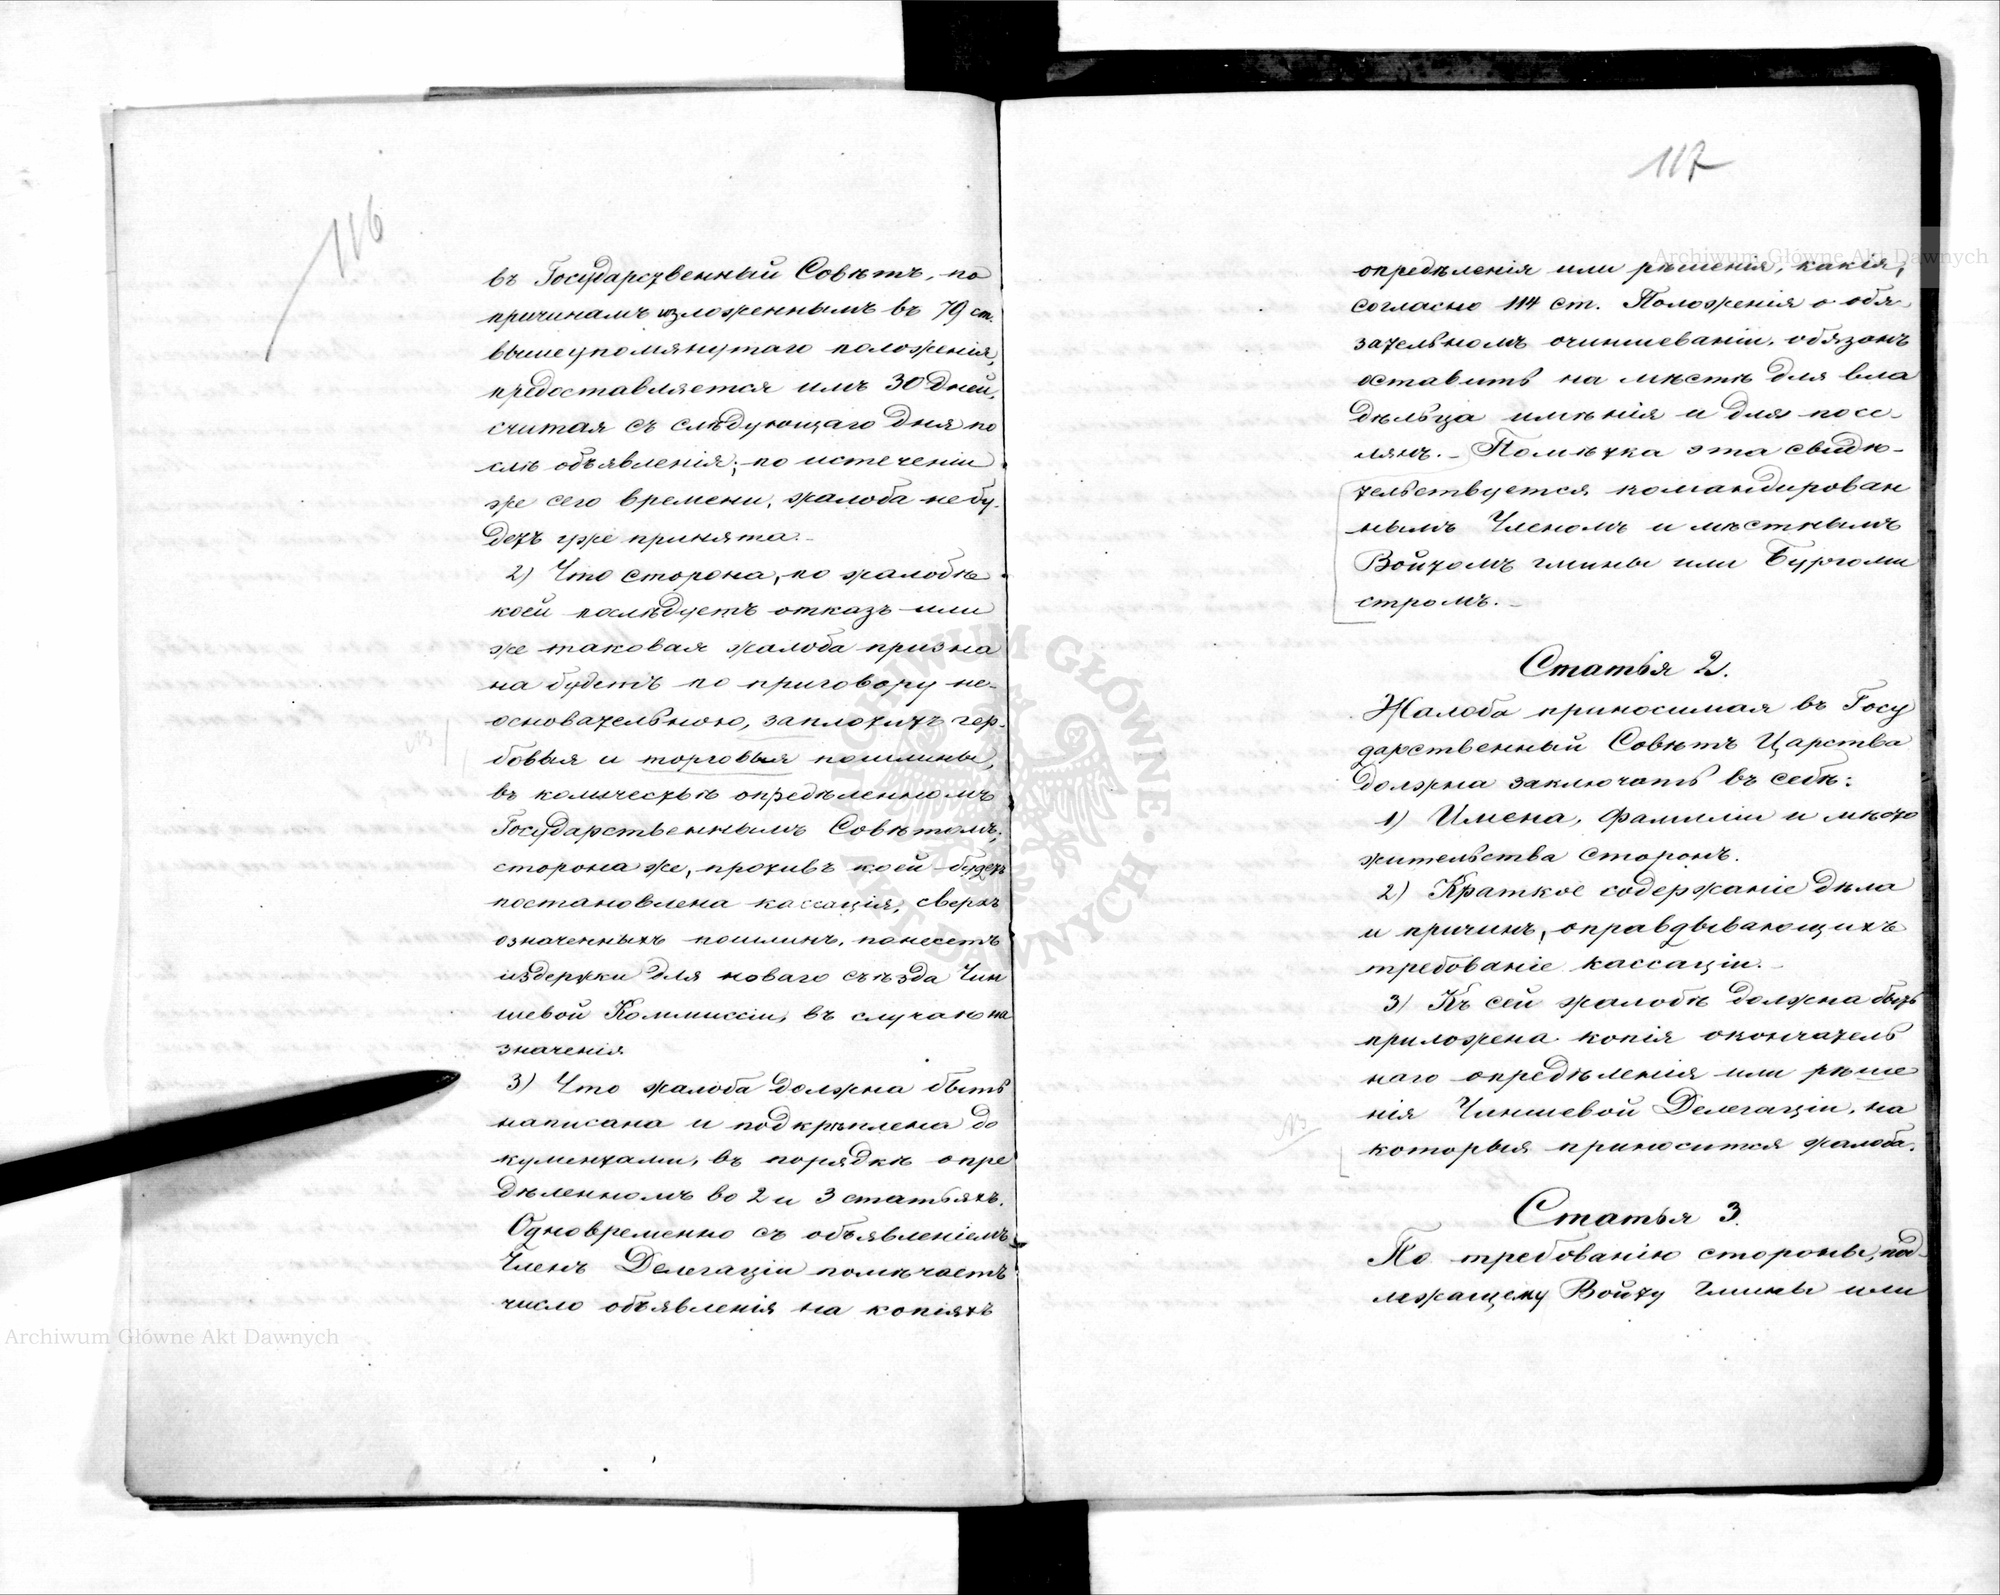 116
въ Государственный Совѣтъ, по
причинамъ изложеннымъ въ 79 ст.
вышеупомянутаго положенія,
предоставляется имъ 30 дней,
считая съ слѣдующаго дня по
слѣ объявленія; по истеченіи
же сего времени, жалоба не бу-
детъ уже принята.-
2) Что сторона, по жалобѣ
коей послѣдуетъ отказъ или
же таковая жалоба призна
на будетъ по приговору не-
основательною, заплотитъ гер-
бовыя и торговыя пошлины,
въ количествѣ опредѣленномъ
Государственнымъ Совѣтомъ;
сторона же, противъ коей будетъ
постановлена кассація, сверхъ
означенныхъ пошлинъ, понесетъ
издержки для новаго съѣзда Чин
шевой Коммиссіи, въ случаѣ на
значенія
3) Что жалоба должна быть
написана и подкрѣплена до
кументами, въ порядкѣ опре
дѣленномъ во 2 и 3 статьяхъ.
Одновременно съ объявленіемъ
Членъ Делегаціи помѣчаетъ
число объявленія на копіяхъ
117
опредѣленія или рѣшенія, какія,
согласно 114 ст. Положенія о обя
зательномъ очиншеваніи, обязанъ
оставить на мѣстѣ для вла
дѣльца имѣнія и для посе-
лянъ.- Помѣтка эта свидѣ-
тельствуется командирован
нымъ Членомъ и мѣстнымъ
Войтомъ гмины или Бургоми
стромъ.-
Статья 2.
Жалоба приносимая въ Госу
дарственный Совѣтъ Царства
должна заключать въ себѣ:
1) Имена, фамиліи и мѣсто
жительства сторонъ.
2) Краткое содержаніе дѣла
и причинъ, оправдывающихъ
требованіе кассаціи.-
3) Къ сей жалобѣ должна быть
приложена копія окончатель
наго опредѣленія или рѣше
нія Чиншевой Делегаціи, на
которыя приносится жалоба.
Статья 3.
По требованію стороны, под-
лежащему Войту Гмины или
Archiwum Główne Akt Dawnych
Archiwum Główne Akt Dawnych